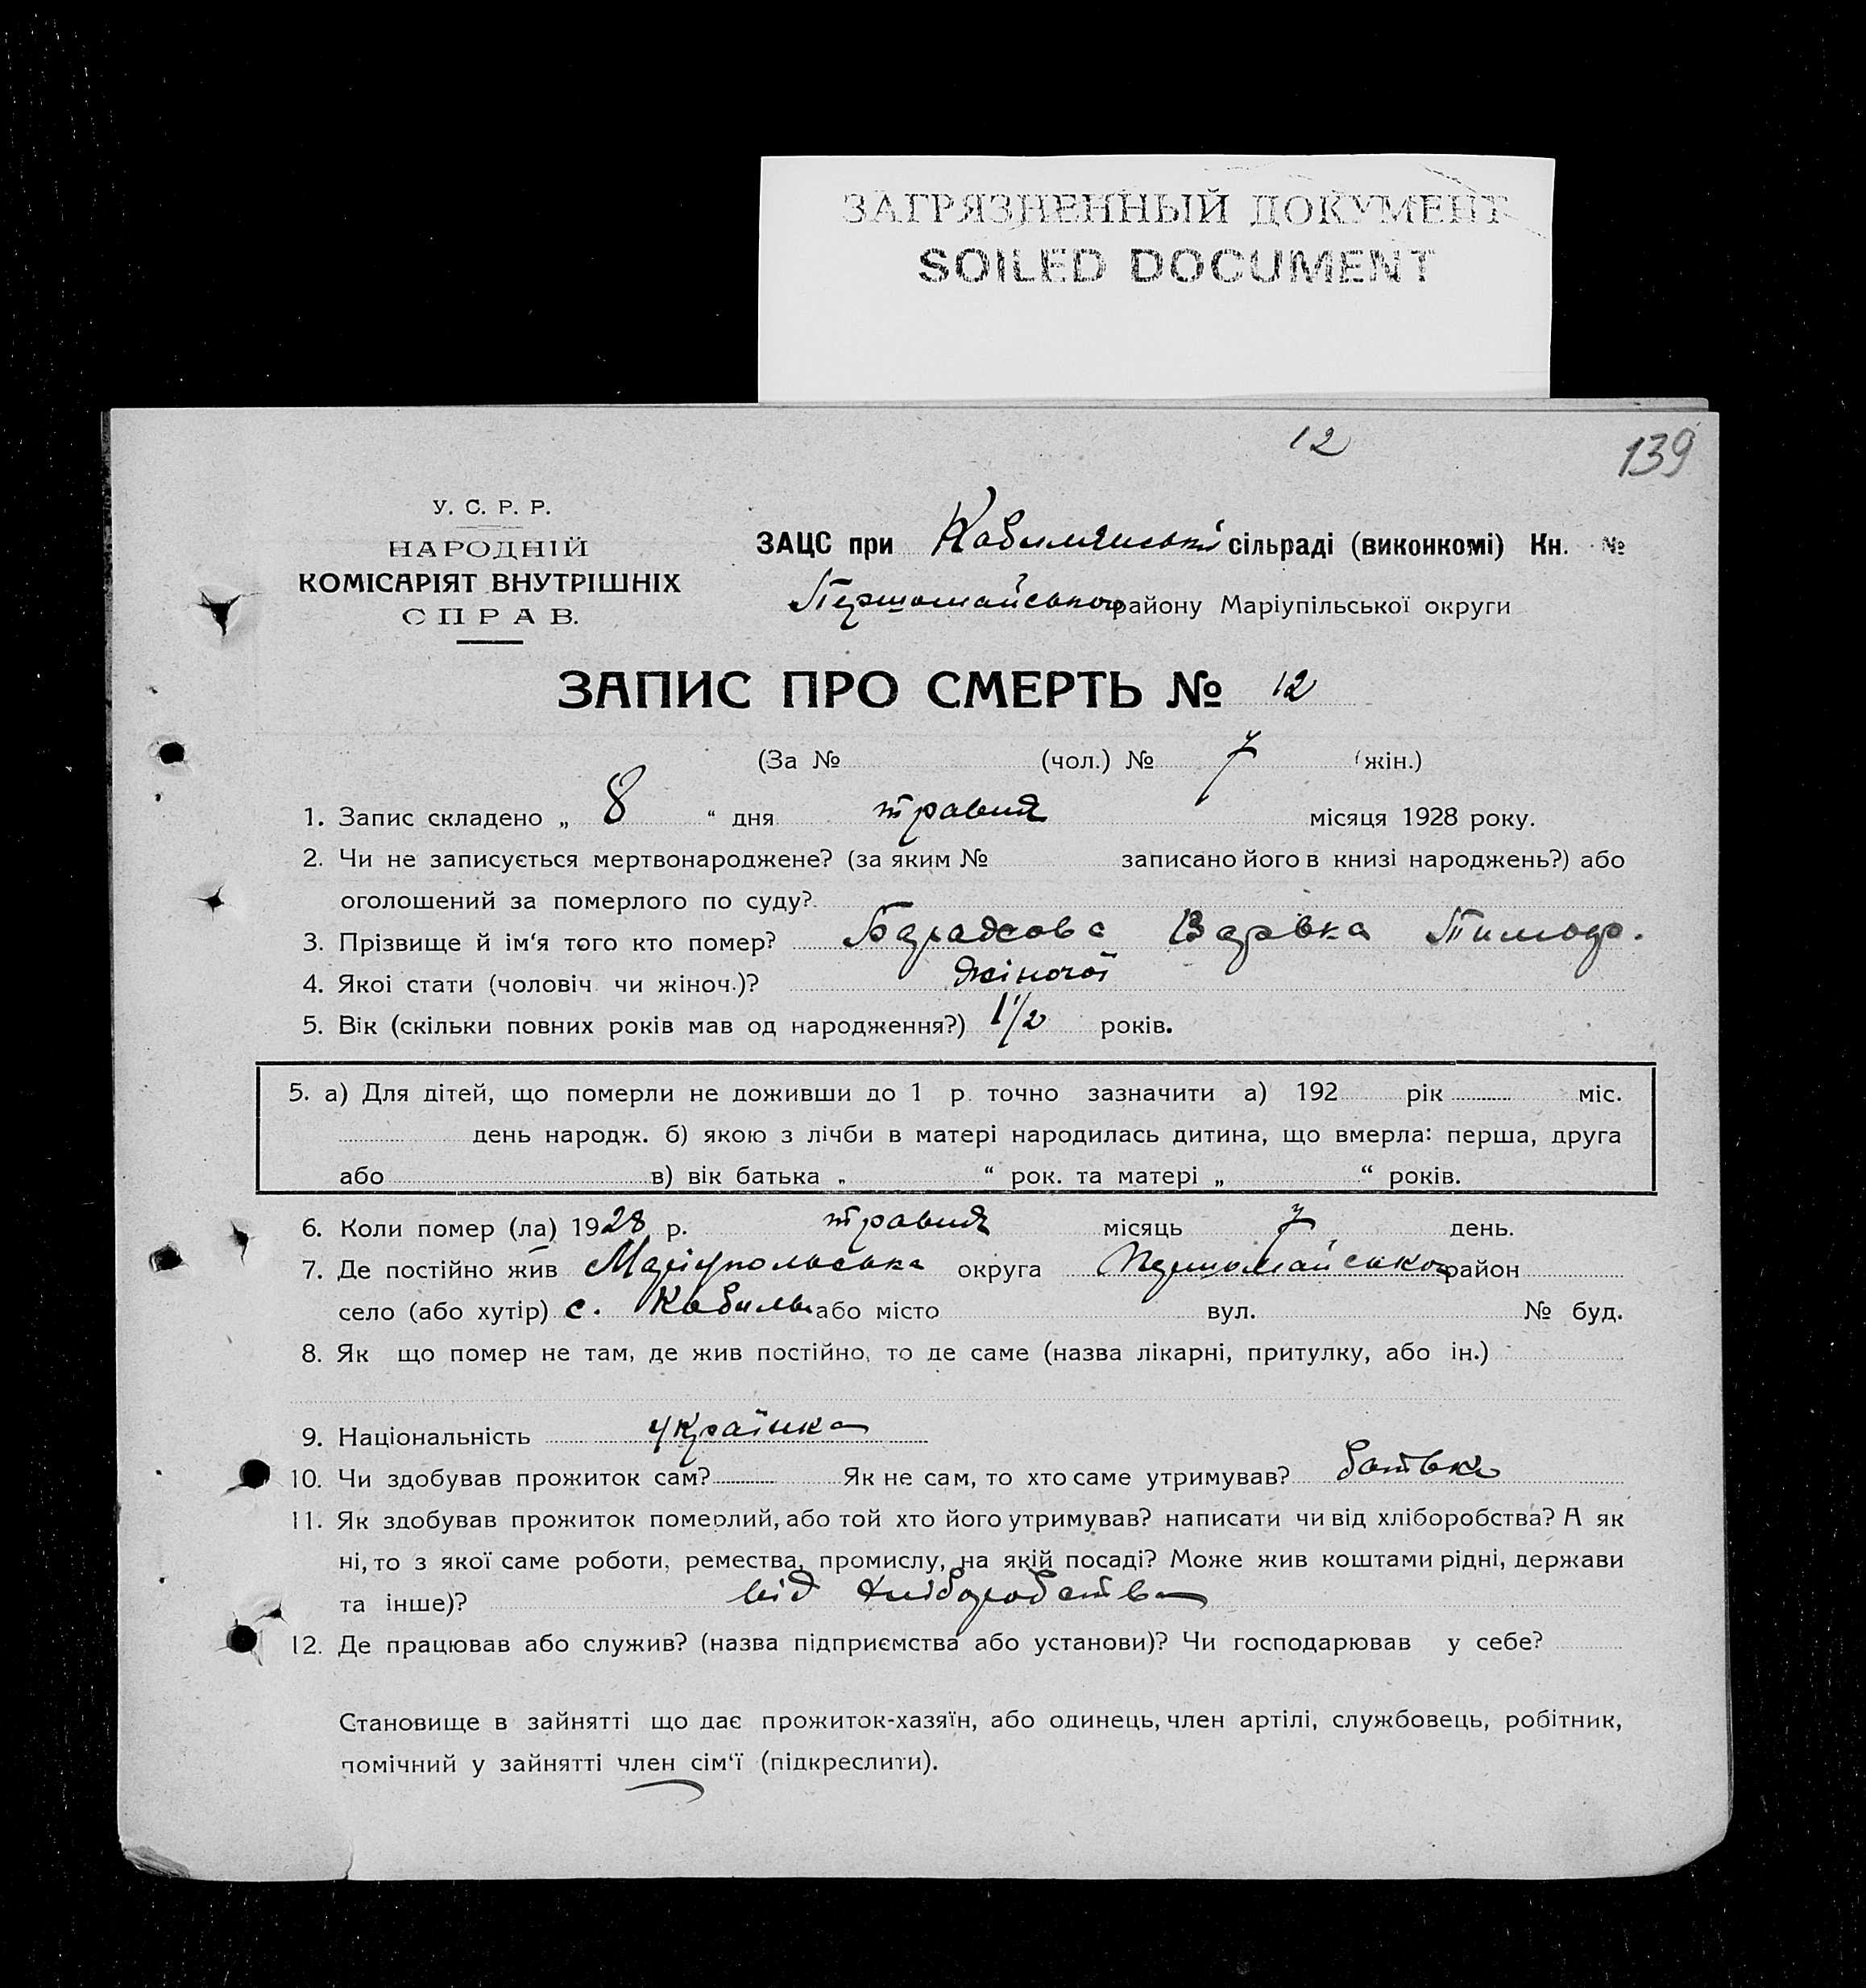 ЗАГРЯЗНЕННЫЙ ДОКУМЕНТ
SOILED DOCUMENT
12
139
У. С. Р. Р.
НАРОДНІЙ
КОМІСАРІЯТ ВНУТРІШНІХ
СПРАВ.
ЗАЦС при сільраді (виконкомі) Кн. №
Першомайського району Маріупільської округи
ЗАПИС ПРО СМЕРТЬ № 12
(За № (чол.) № 7 (жін.)
1. Запис складено „ 8 “ дня травня місяця 1928 року.
2. Чи не записується мертвонароджене? (за яким № записано його в книзі народжень?) або
оголошений за померлого по суду?
3. Прізвище й ім‘я того хто помер?
4. Якоі стати (чоловіч чи жіноч.)? жіночої
5. Вік (скільки повних років мав од народження?) 1 1/2 років.
5. а) Для дітей, що померли не доживши до 1 р. точно зазначити а) 192 рік міс.
день народж. б) якою з лічби в матері народилась дитина, що вмерла: перша, друга
або в) вік батька „ “ рок. та матері „ “ років.
6. Коли помер (ла) 1928 р. травня місяць 7 день.
7. Де постійно жив Маріупольська округа Першомайського район
село (або хутір) с. або місто вул. № буд.
8. Як що помер не там, де жив постійно, то де саме (назва лікарні, притулку, або ін.)
9. Національність українка
10. Чи здобував прожиток сам? Як не сам, то хто саме утримував? батько
11. Як здобував прожиток померлий, або той хто його утримував? написати чи від хліборобства? А як
ні, то з якої саме роботи, ремества, промислу, на якій посаді? Може жив коштами рідні, держави
та інше)? від хліборобства
12. Де працював або служив? (назва підприємства або установи)? Чи господарював у себе?
Становище в зайнятті що дає прожиток-хазяїн, або одинець, член артілі, службовець, робітник,
помічний у зайнятті член сім‘ї (підкреслити).